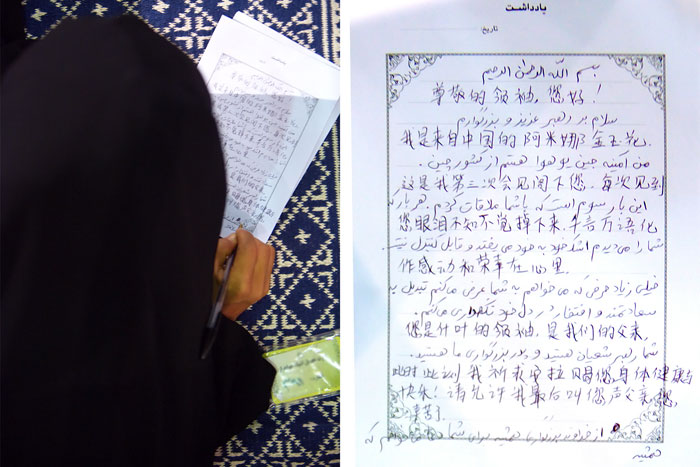 یادداشت
تاریخ:
بسم الله الرحمن الرحیم
尊敬的领袖,您好!
سلام بر رهبر عزیز و بزرگوارم
我是来自中国的阿米娜金玉花.
من آمنه جین یو هوا هستم از کشور چین.
这是我第三次会见阁下您,每次见到
این بار سوم است که با شما ملاقات کردم. هر بار که
您眼泪不知不觉掉下来,千言万语化
شما را می‌دیدم اشک خود به خود می یفتد و قابل کنترل نیست
作感动和荣幸在心里.
خیلی زیاد حرفی که می خواهم به شما عرض می‌کنم تبدیل به
سعادتمند و افتخار در دل خود نگهداری می‌کنم.
您是什叶的领袖,是我们的父亲,
شما رهبر شیعیان هستید و پدر بزرگواری ما هستید.
此时此刻我祈求安拉贝偒您身体健康与
快乐!请允许我最后叫您声父亲,您
辛苦了
از خداوند برای شما که
همیشه